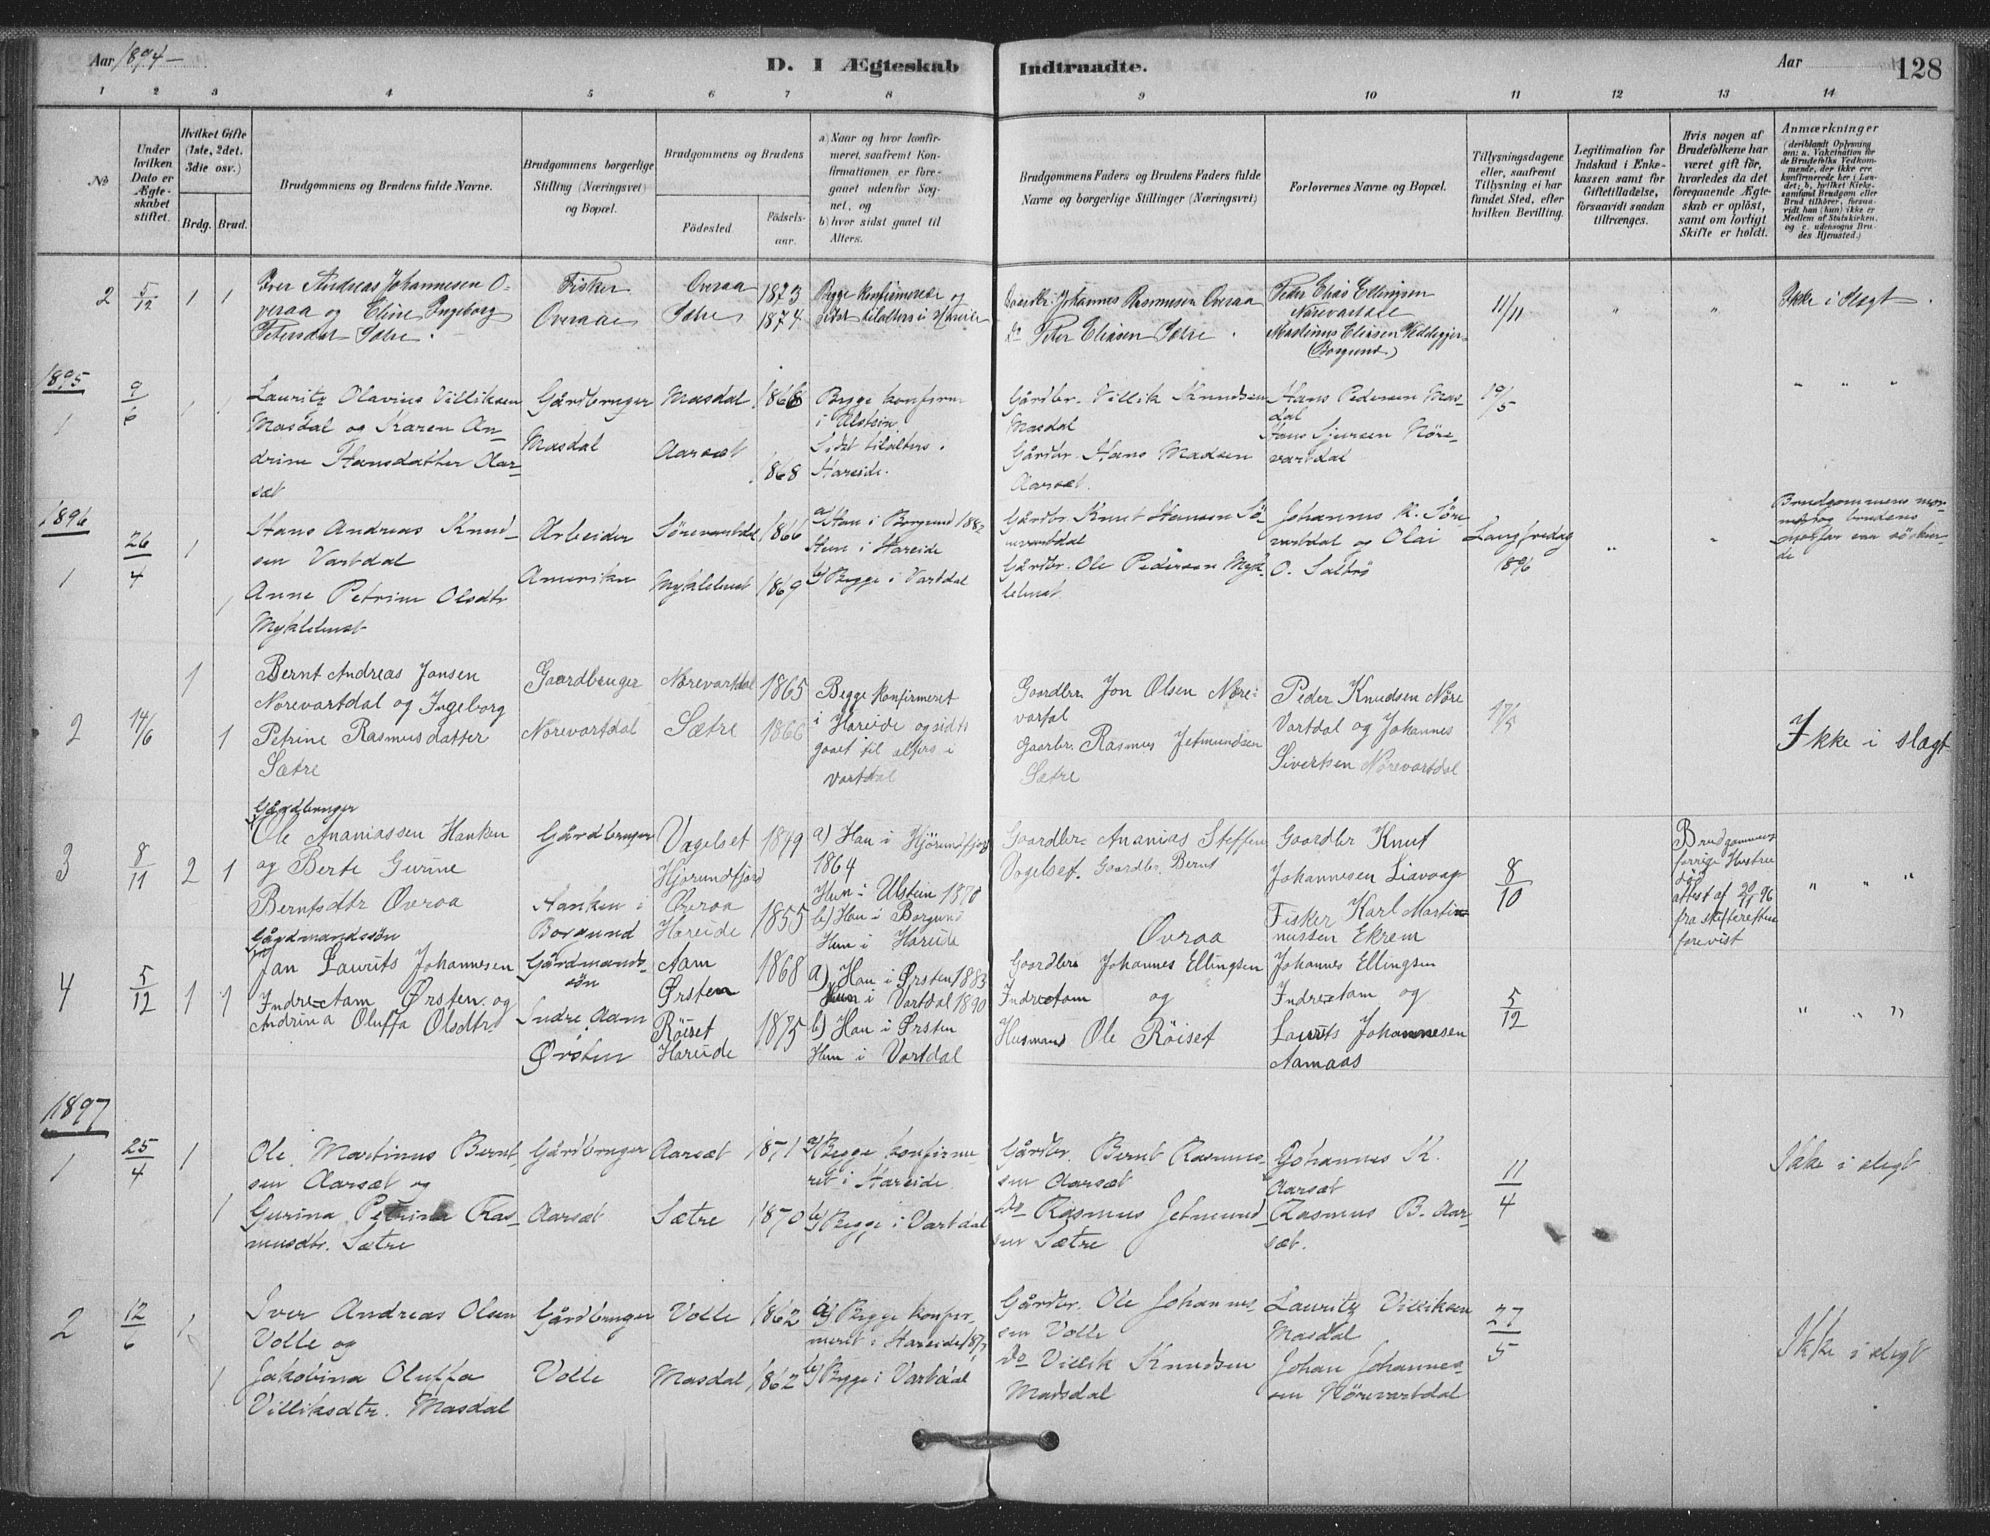 Aar 1894 –
D. I Ægteskab
Indtraadte.
Aar
128
1 2 3 4 5 6 7 8 9 10 11 12 13 14
No
Under hvilken Dato er Ægteskabet stiftet.
Hvilket Gifte (1ste, 2det. 3die osv.)
Brdg. Brud.
Brudgommens og Brudens fulde Navne.
Brudgommens borgerlige Stilling (Næringsvei) og Bopæl.
Brudgommens og Brudens
Födested
Födsels-aar.
a) Naar og hvor konfirmeret, saafremt Konfirmationen er foregaaet udenfor Sognet, og
b) hvor sidst gaaet til Alters.
Brudgommens Faders og Brudens Faders fulde Navne og borgerlige Stillinger (Næringsvei)
Forlovernes Navne og Bopæl.
Tillysningsdagene eller, saafremt Tillysning ei har fundet Sted, efter hvilken Bevilling.
Legitimation for Indskud i Enkekassen samt for Giftetilladelse, forsaavidt saadan tiltrænges.
Hvis nogen af Brudefolkene har været gift för, hvorledes da det foregaaende Ægteskab er oplöst, samt om lovligt Skifte er holdt.
Anmærkninger
(deriblandt Oplysning om: a. Vakcination for de Brudefolks Vedkommende, der ikke ere konfirmerede her i Landet; b. hvilket Kirkesamfund Brudgom eller Brud tilhörer, forsaavidt han (hun) ikke er Medlem af Statskirken, og c. udensogns Brudes Hjemsted.)
2 5/12 1 1
Iver Andreas Johannesen O-
veraa og Eline Ingeborg
Petersdat Sætre.
Fisker
Overaae
Overaa
Sætre
1873
1874
Begge konfirmerede og
sidst tilalters i Hareide
Gaardbr. Johannes Rasmusen Overaa
Do Peter Eliasen Sætre.
Peder Elias Ellingsen
Nörevartdal
Mastinus Eliasen
(Borgund)
11/11
" "
Ikke i Slægt.
1895
1 9/6 1 1
Lauritz Olavius Villiksen
Masdal og Karen An-
drine Hansdatter Aar-
sæt
Gårdbruger
Masdal
Masdal
Aarsæt
1868
1868
Begge konfirm
i Ulstein.
Sidst tilalters i
Hareide.
Gårdbr. Villik Knudsen
Masdal
Gårdbr. Hans Madsen
Aarsæt.
Hans Pedersen Mas-
dal
Hans Sjursen Nöre-
vartdal
19/5
" " "
1896
1 26/4 1 1
Hans Andreas Knud-
sen Vartdal
Anne Petrine Olsdtr
Myklebust
Arbeider
Amerika
Sörevartdal
Myklebust
1866
1869
a) Han i Borgund 188
Hun i Hareide
b) Begge i Vartdal
Gårdbr. Knut Hansen Sö-
revartdal
Gårdbr. Ole Pedersen Myk-
lebust.
Johannes K. Söre
vartdal og Olai
O. Sætre
Langfredag
1896
" "
Brudgommens mor-
mor og brudens
morfar var söskin-
de
2 14/6 1 1
Bernt Andreas Jonsen
Norevartdal og Ingeborg
Petrine Rasmusdatter
Sætre
Gaardbruger
Nörevartdal
Nörevartdal
Sætre
1865
1866
Begge konfirmeret
i Hareide og sidst
gaaet til alters i
Vartdal
Gaardbr. Jon Olsen Nöre-
vartdal
Gaarbr. Rasmus Jetmundsen
Sætre
Peder Knudsen Nöre
Vartdal og Johannes
Sivertsen Nörevartdal
17/5
Ikke i slægt
3 8/11 2 1
Gårdbruger
Ole Ananiassen Hanken
og Berte Gurine
Berntsdtr Øvraa
Gårdbruger
Hanken i
Borgund
Vagelset
Hjörundfjord
Øvraa
Hareide
1849
1855
a) Han i Hjörundfjord
1864
Hun i Ulstein 1870
b) Han i Borgund
Hun i Hareide
Gaardbr. Ananias Steffen
Vogelset. Gaardbr. Bernt
Øvraa
Gaardbr Knut
Johannesen Liavaag
Fisker Karl Martin-
nussen Ekrem
8/10
Brudgommens
forrige Hustru
död
attest af 20/11 96
fra skifteretten
forevist
" " "
4 5/12 1 1
Gårdmandssön
Jan Laurits Johannesen
Indre-Aam Ørsten og
Andrina Oluffa Olsdtr
Gårdmands-
sön
Indre Aam
Ørsten
Aam
Ørsten
Röiset
Hareide
1868
1875
a) Han i Ørsten 1883
Hun i Vartdal 1890
b) Han i Ørsten
Hun i Vartdal
Gaardbr. Johannes Ellingsen
Indreaam og
Husmand Ole Röiset
Johannes Ellingsen
Indre-Aam og
Laurits Johannesen
Aamaas
5/12
" " "
1897
1 25/4 1 1
Ole Martinus Bernt-
sen Aarsæt og
Gurina Petrina Ras-
musdtr. Sætre
Gårdbruger
Aarsæt
Aarsæt
Sætre
1871
1870
a) Begge konfirme-
ret i Hareide.
b) Begge i Vartdal
Gårdbr. Bernt Rasmus-
sen Aarsæt
Do Rasmus Jetmund-
sen Sætre
Johannes K.
Aarsæt
Rasmus B. Aar-
sæt.
11/4
Ikke i slegt
2 12/6 1 1
Iver Andreas Olsen
Volle og
Jakobina Oluffa
Villiksdtr. Masdal
Gårdbruger
Volle
Volle
Masdal
1862
1862
a) Begge konfir-
meret i Hareide 187
b) Begge i Vartdal
Gårdbr. Ole Johannes-
sen Volle
Do Villik Knudsen
Masdal
Lauritz Villiksen
Masdal
Johan Johannes-
sen Nörevartdal
27/5
Ikke i slegt